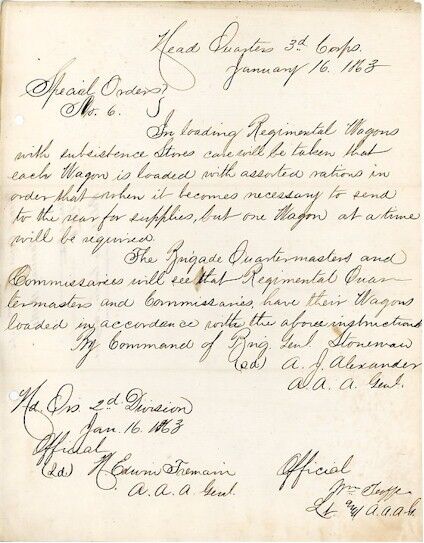 Head Quarters 3d Corps.
January 16. 1863
Special Orders
No. 6.
In loading Regimental Wagons
with subsistence Stores care will be taken that
each Wagon is loaded with assorted rations in
order that when it becomes necessary to send
to the rear for supplies, but one Wagon at a time
will be required.
The Brigade Quartermasters and
Commissaries will see that Regimental Quar-
termasters and Commissaries, have their Wagons
loaded in accordance with the above instructions
By Command of Brig. Genl. Stoneman
(sd) A. J. Alexander
A. A. A. Genl.
Hd. Qrs. 2d. Division
Jan. 16. 1863
Official
(sd) H Edwin Tremain
A. A. A. Genl.
Official
Wm
Lt and A.a.a.G.